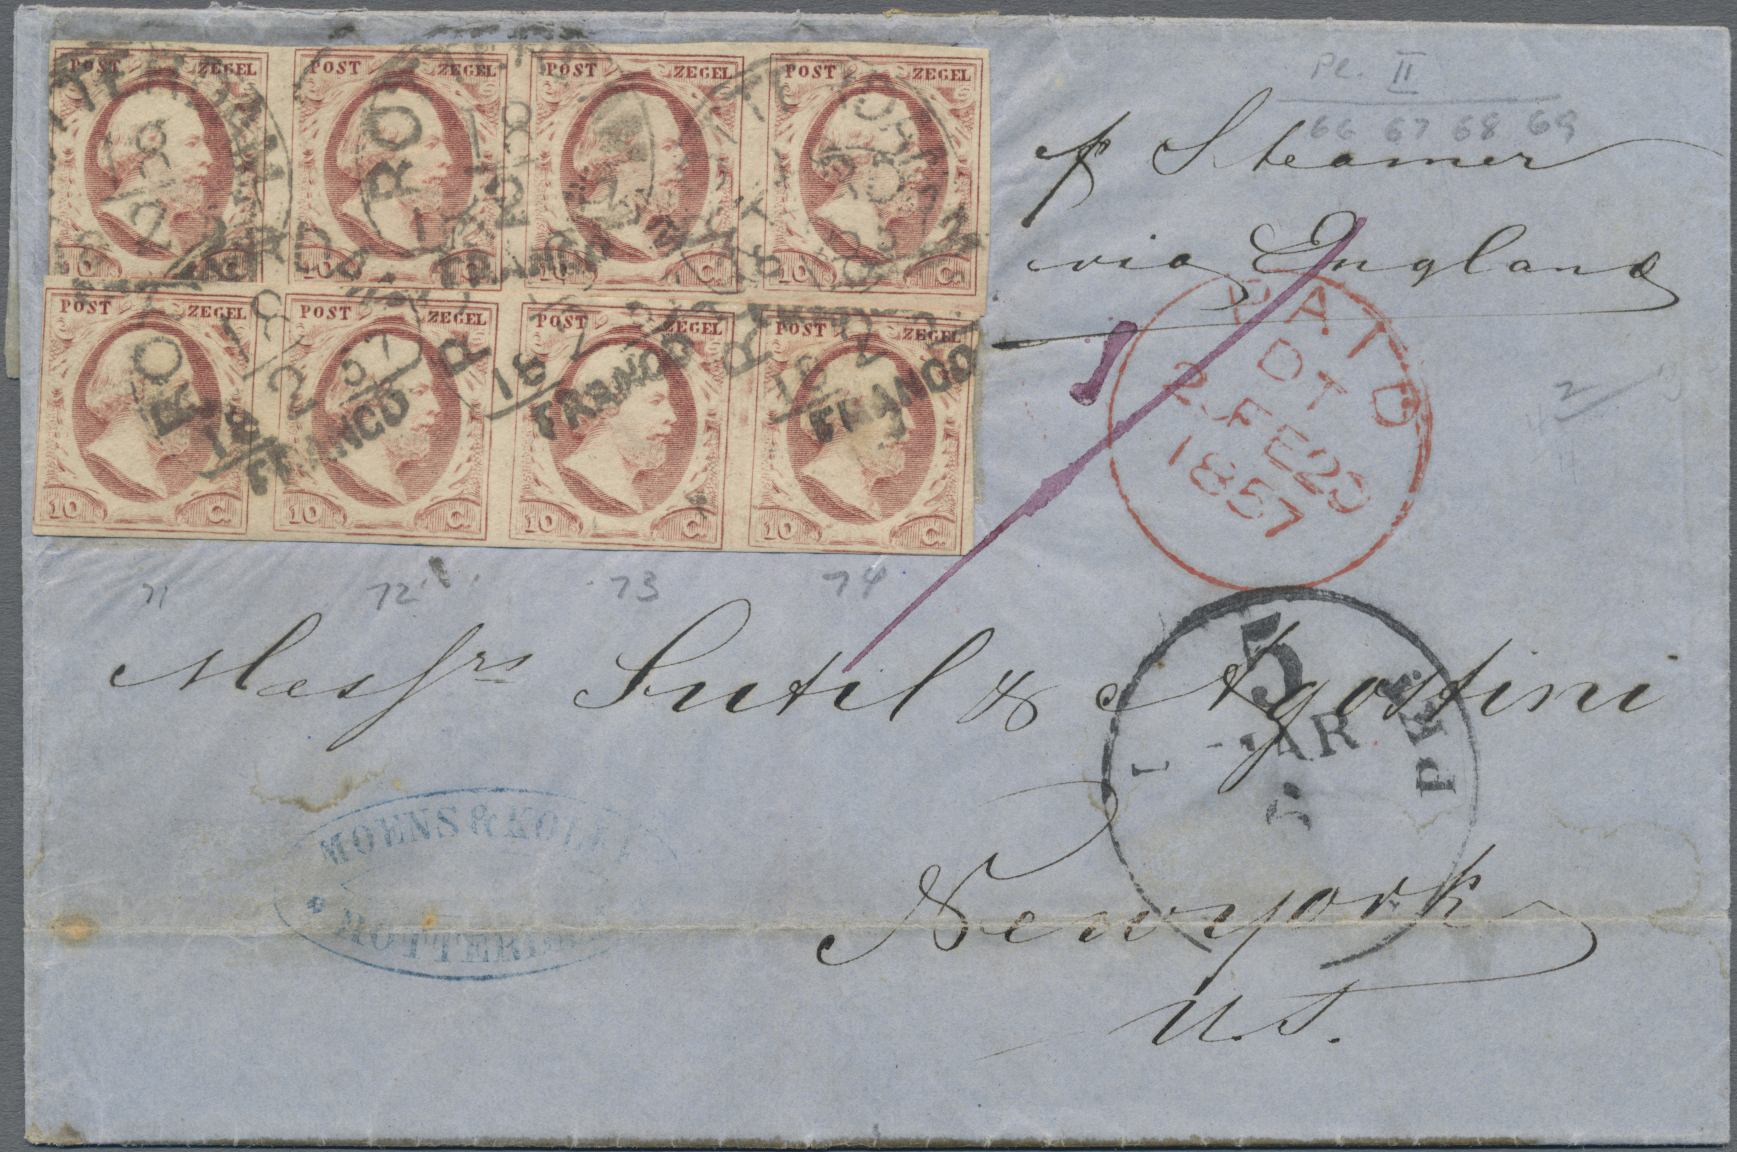 POST ZEGEL POST ZEGEL POST ZEGEL POST ZEGEL
10 C. 10 C. 10 C. 10 C.
POST ZEGEL POST ZEGEL POST ZEGEL POST ZEGEL
10 C. 10 C. 10 C. 10 C.
FRANCO
FRANCO FRANCO FRANCO
Pl. II
66 67 68 69
p Steamer
via England
PAID
DT
FE20
1857
71 72 73 74
Messrs Sutil & Agostini
5
MAR
MOENS & KOLFF
ROTTERDAM
New york
U.S.